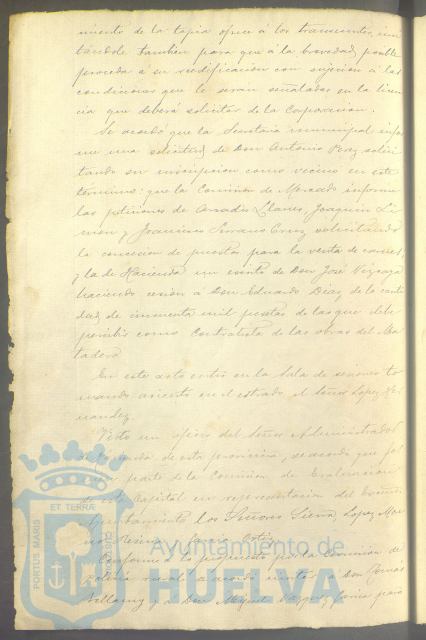 miento de la tapia ofrece á los transeuntes, invi
tándole también para que á la brevedad posible
proceda á su reedificación con sujeción á las
condiciones que le serán señaladas en la licen
cia que deberá solicitar de la Corporación.
Se acordó que la Secretaría municipal infor
me una solicitud de Don Antonio Perez solici
tando su inscripción como vecino en este
término: que la Comisión de Mercado informe
las peticiones de Llanes, Joaquín
y Serrano Cruz solicitando
la concesión de puestos para la venta de carnes,
y la de Hacienda un escrito de Don José Vizcaya
haciendo cesión á Don Eduardo Diaz, de la canti
dad de cincuenta mil pesetas de las que debe
percibir como Contratista de las obras del Ma
tadero.
En este acto entró en la Sala de sesiones to
mando asiento en el estrado el Señor Lopez Her
nandez.
Visto un oficio del Señor Administrador
de Hacienda de esta provincia, se acordó que for
men parte de la Comisión de Evaluación
de esta Capital en representación del Excmo
Ayuntamiento los Señores Sierra, Lopez
y Garcia Ortiz.
Conforme á lo propuesto por la Comisión de
Policía rural se acordó nombrar á Don Tomás
y á Don Miguel para
PORTUS MARIS ET TERRAE CUSTODIA
Ayuntamiento de
HUELVA